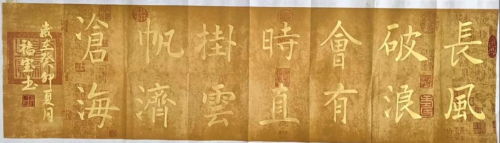 長風
破浪
會有
時直
掛雲
帆濟
滄海
歲在癸卯夏月